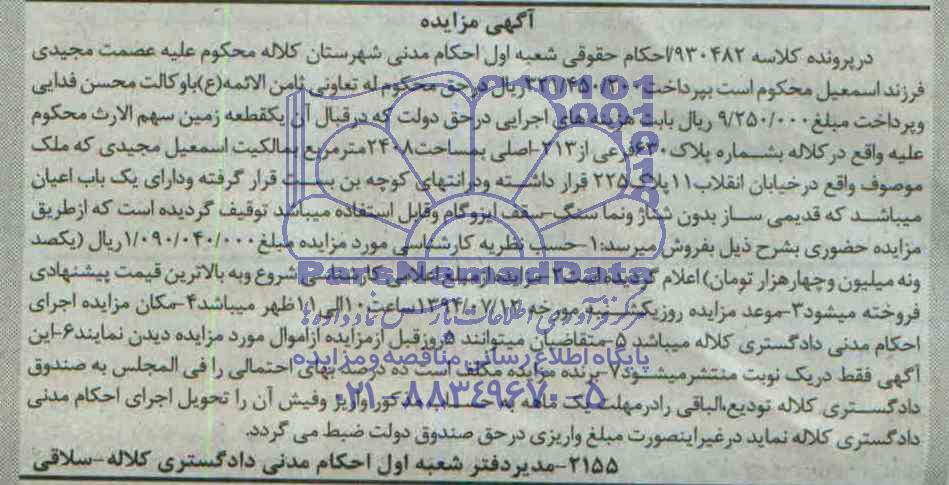 آگهی مزایده
درپرونده کلاسه ۹۳۰۴۸۲/احکام حقوقی شعبه اول احکام مدنی شهرستان کلاله محکوم علیه عصمت مجیدی
فرزند اسمعیل محکوم است بپرداخت ۲۲۱/۴۵۰/۲۰۰ریال درحق محکوم له تعاونی ثامن الائمه(ع)باوکالت محسن فدایی
وپرداخت مبلغ۹/۲۵۰/۰۰۰ ریال بابت هزینه های اجرایی درحق دولت که درقبال آن یکقطعه زمین سهم الارث محکوم
علیه واقع درکلاله بشماره پلاک۶۳۰فرعی از۲۱۳-اصلی بمساحت۲۴۰۸مترمربع بمالکیت اسمعیل مجیدی که ملک
موصوف واقع درخیابان انقلاب۱۱پلاک۲۲۵ قرار داشته ودرانتهای کوچه بن بست قرار گرفته ودارای یک باب اعیان
میباشد که قدیمی ساز بدون شناژ ونما سنگ-سقف ایزوگام وقابل استفاده میباشد توقیف گردیده است که ازطریق
مزایده حضوری بشرح ذیل بفروش میرسد:۱-حسب نظریه کارشناسی مورد مزایده مبلغ ۱/۰۹۰/۰۴۰/۰۰۰ریال (یکصد
ونه میلیون وچهارهزار تومان) اعلام گردیده است۲-مزایده ازمبلغ اعلامی کارشناسی شروع وبه بالاترین قیمت پیشنهادی
فروخته میشود۳-موعد مزایده روزیکشنبه مورخه ۱۳۹۴/۰۷/۱۲ساعت ۱۰الی۱۱ظهر میباشد۴-مکان مزایده اجرای
احکام مدنی دادگستری کلاله میباشد ۵-متقاضیان میتوانند ۵روزقبل ازمزایده ازاموال مورد مزایده دیدن نمایند۶-این
آگهی فقط دریک نوبت منتشرمیشود۷-برنده مزایده مکلف است ده درصدبهای احتمالی را فی المجلس به صندوق
دادگستری کلاله تودیع،الباقی رادرمهلت یک ماهه به حساب مذکورواریز وفیش آن را تحویل اجرای احکام مدنی
دادگستری کلاله نماید درغیراینصورت مبلغ واریزی درحق صندوق دولت ضبط می گردد.
۲۱۵۵-مدیردفتر شعبه اول احکام مدنی دادگستری کلاله-سلاقی
ParsNamadData
پایگاه اطلاع رسانی مناقصه و مزایده
۰۲۱-۸۸۳۴۹۶۷۰-۵